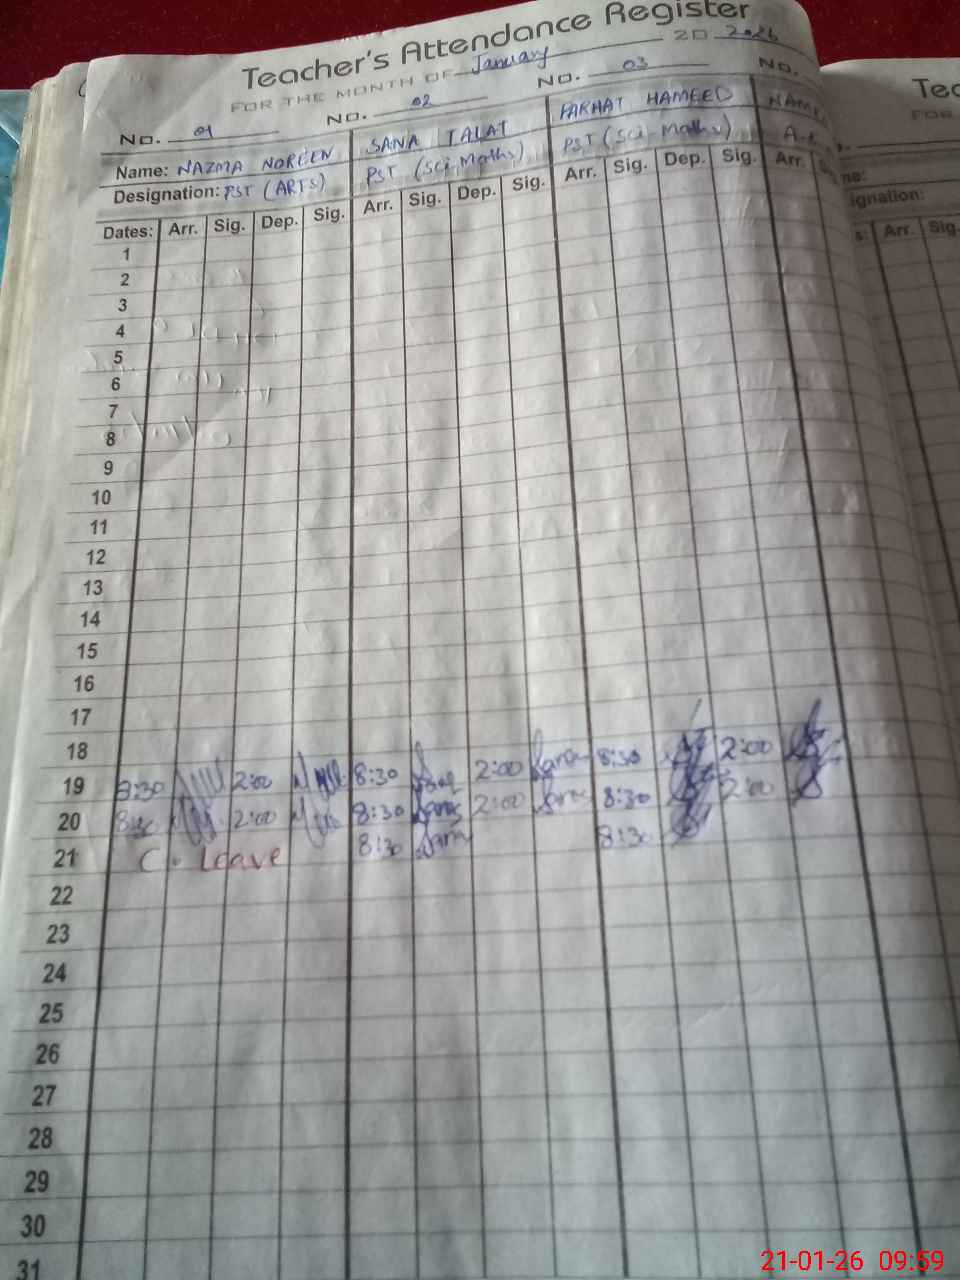 Teacher's Attendance Register
FOR THE MONTH OF January 20 2026
No. 01 No. 02 No. 03 No.
Name: NAZMA NOREEN SANA TALAT FARHAT HAMEED
Designation: PST (ARTS) PST (Sci-Maths) PST (Sci-Maths)
Dates: Arr. Sig. Dep. Sig. Arr. Sig. Dep. Sig. Arr. Sig. Dep. Sig. Arr.
1
2
3
4
5
6
7
8
9
10
11
12
13
14
15
16
17
18
19 8:30 2:00 8:30 2:00 8:30 2:00
20 2:00 8:30 2:00 8:30 2:00
21 C. Leave 8:30 8:30
22
23
24
25
26
27
28
29
30
31
Teac
FOR
me:
ignation:
s: Arr. Sig.
21-01-26 09:59